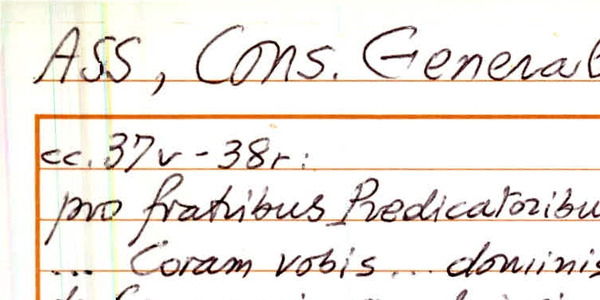 ASS, Cons. General
cc. 37v - 38r:
pro fratribus Predicatoribu
... Coram vobis ... dominis